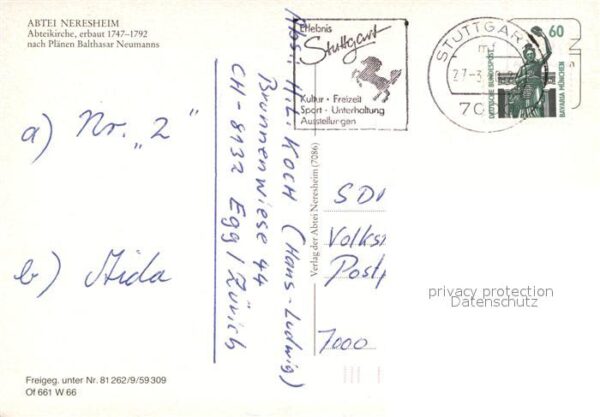 ABTEI NERESHEIM
Abteikirche, erbaut 1747–1792
nach Plänen Balthasar Neumanns
a) Nr. „2"
b) Aida
Freigeg. unter Nr. 81 262/9/59 309
Of 661 W 66
Abs.: H.L. KOCH (Hans-Ludwig)
Brunnenwiese 44
CH-8132 Egg/Zürich
Verlag der Abtei Neresheim (7086)
Erlebnis
Stuttgart
Kultur · Freizeit
Sport · Unterhaltung
Ausstellungen
STUTTGAR
mf
27.-3.
70
60
DEUTSCHE BUNDESPOST
BAVARIA MÜNCHEN
SD
Volks
Post
7000
privacy protection
Datenschutz